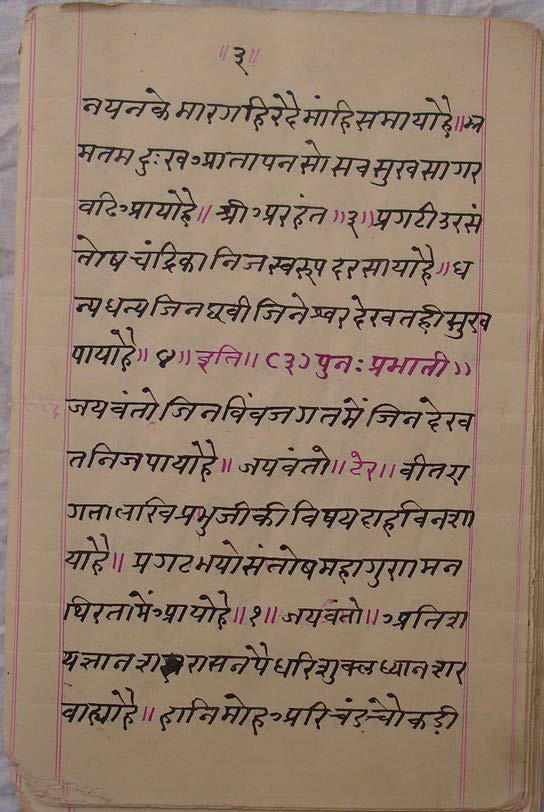 ॥३॥
नयनके मारग हिरदै मांहि समायोहै॥ भ्र
मतम दुःख आतापन सो सब सुखसागर
वटि आयोहै॥ श्री अरहंत ॥३॥ प्रगटी उर सं
तोष चंद्रिका निज स्वरूप दरसायोहै॥ ध
न्य धन्य जिन छवी जिनेश्वर देखत ही सुख
पायोहै॥ ४॥ इति॥ (३) पुनः प्रभाती॥
जयवंतो जिनविंव जगतमें जिन देख
त निज पायोहै॥ जयवंतो॥ टेर॥ वीतरा
गता लखि प्रभुजीकी विषय दाह विनशा
योहै॥ प्रगट भयो संतोष महागुण मन
थिरतामें आयोहै॥१॥ जयवंतो॥ अतिश
य ज्ञान शरासनपै धरि शुक्ल ध्यान शर
वाह्योहै॥ हानि मोह अरि चंड चौकड़ी